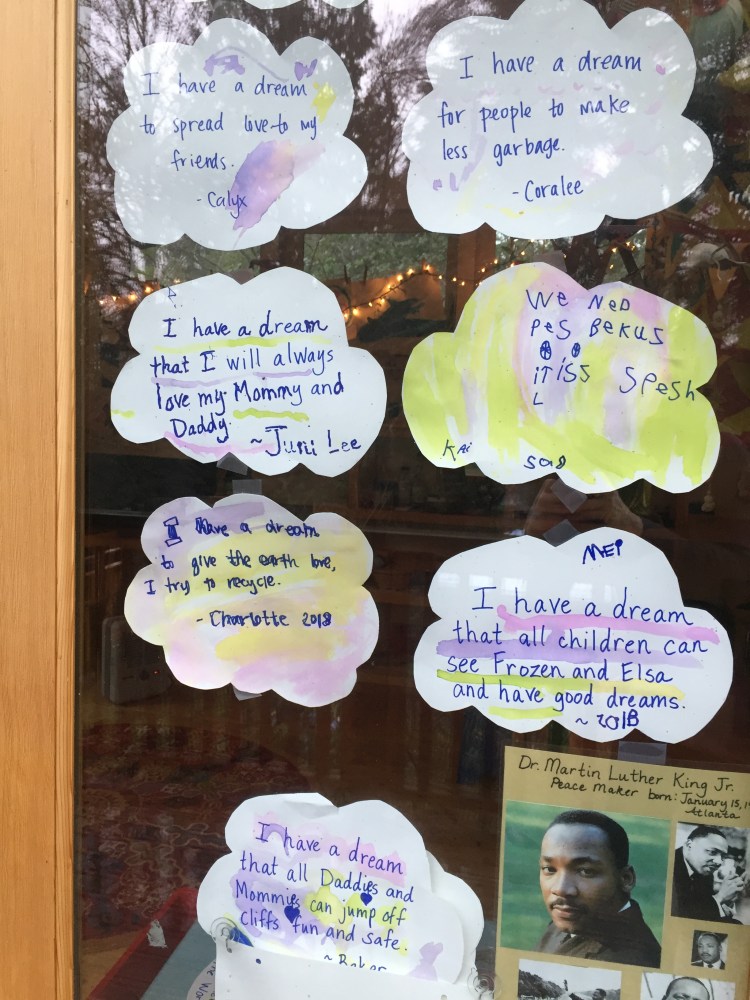 I have a dream
to spread love to my
friends.
- Calyx
I have a dream
for people to make
less garbage.
- Coralee
I have a dream
that I will always
love my Mommy and
Daddy.
~ Juni Lee
We NeD
PeS BeKUS
iT iSS SPesh
L
Kai
I have a dream
to give the earth love,
I try to recycle.
- Charlotte 2018
MEi
I have a dream
that all children can
see Frozen and Elsa
and have good dreams.
~ 2018
I have a dream
that all Daddies and
Mommies can jump off
Cliffs fun and safe.
~ Baker
Dr. Martin Luther King Jr.
Peace Maker born: January 15, 1
Atlanta